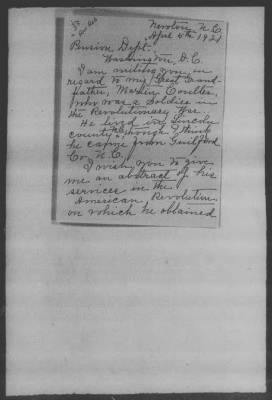 Newton N.C.
April 4th 1921
Pension Dept.
Washington, D.C.
I am writing you in
regard to my Great Grand-
father, Martin Coulter,
who was a Soldier in
the Revolutionary War.
He lived in Lincoln
county although I think
he came from Guilford
Co. N.C.
I wish you to give
me an abstract of his
services in the
American Revolution
on which he obtained